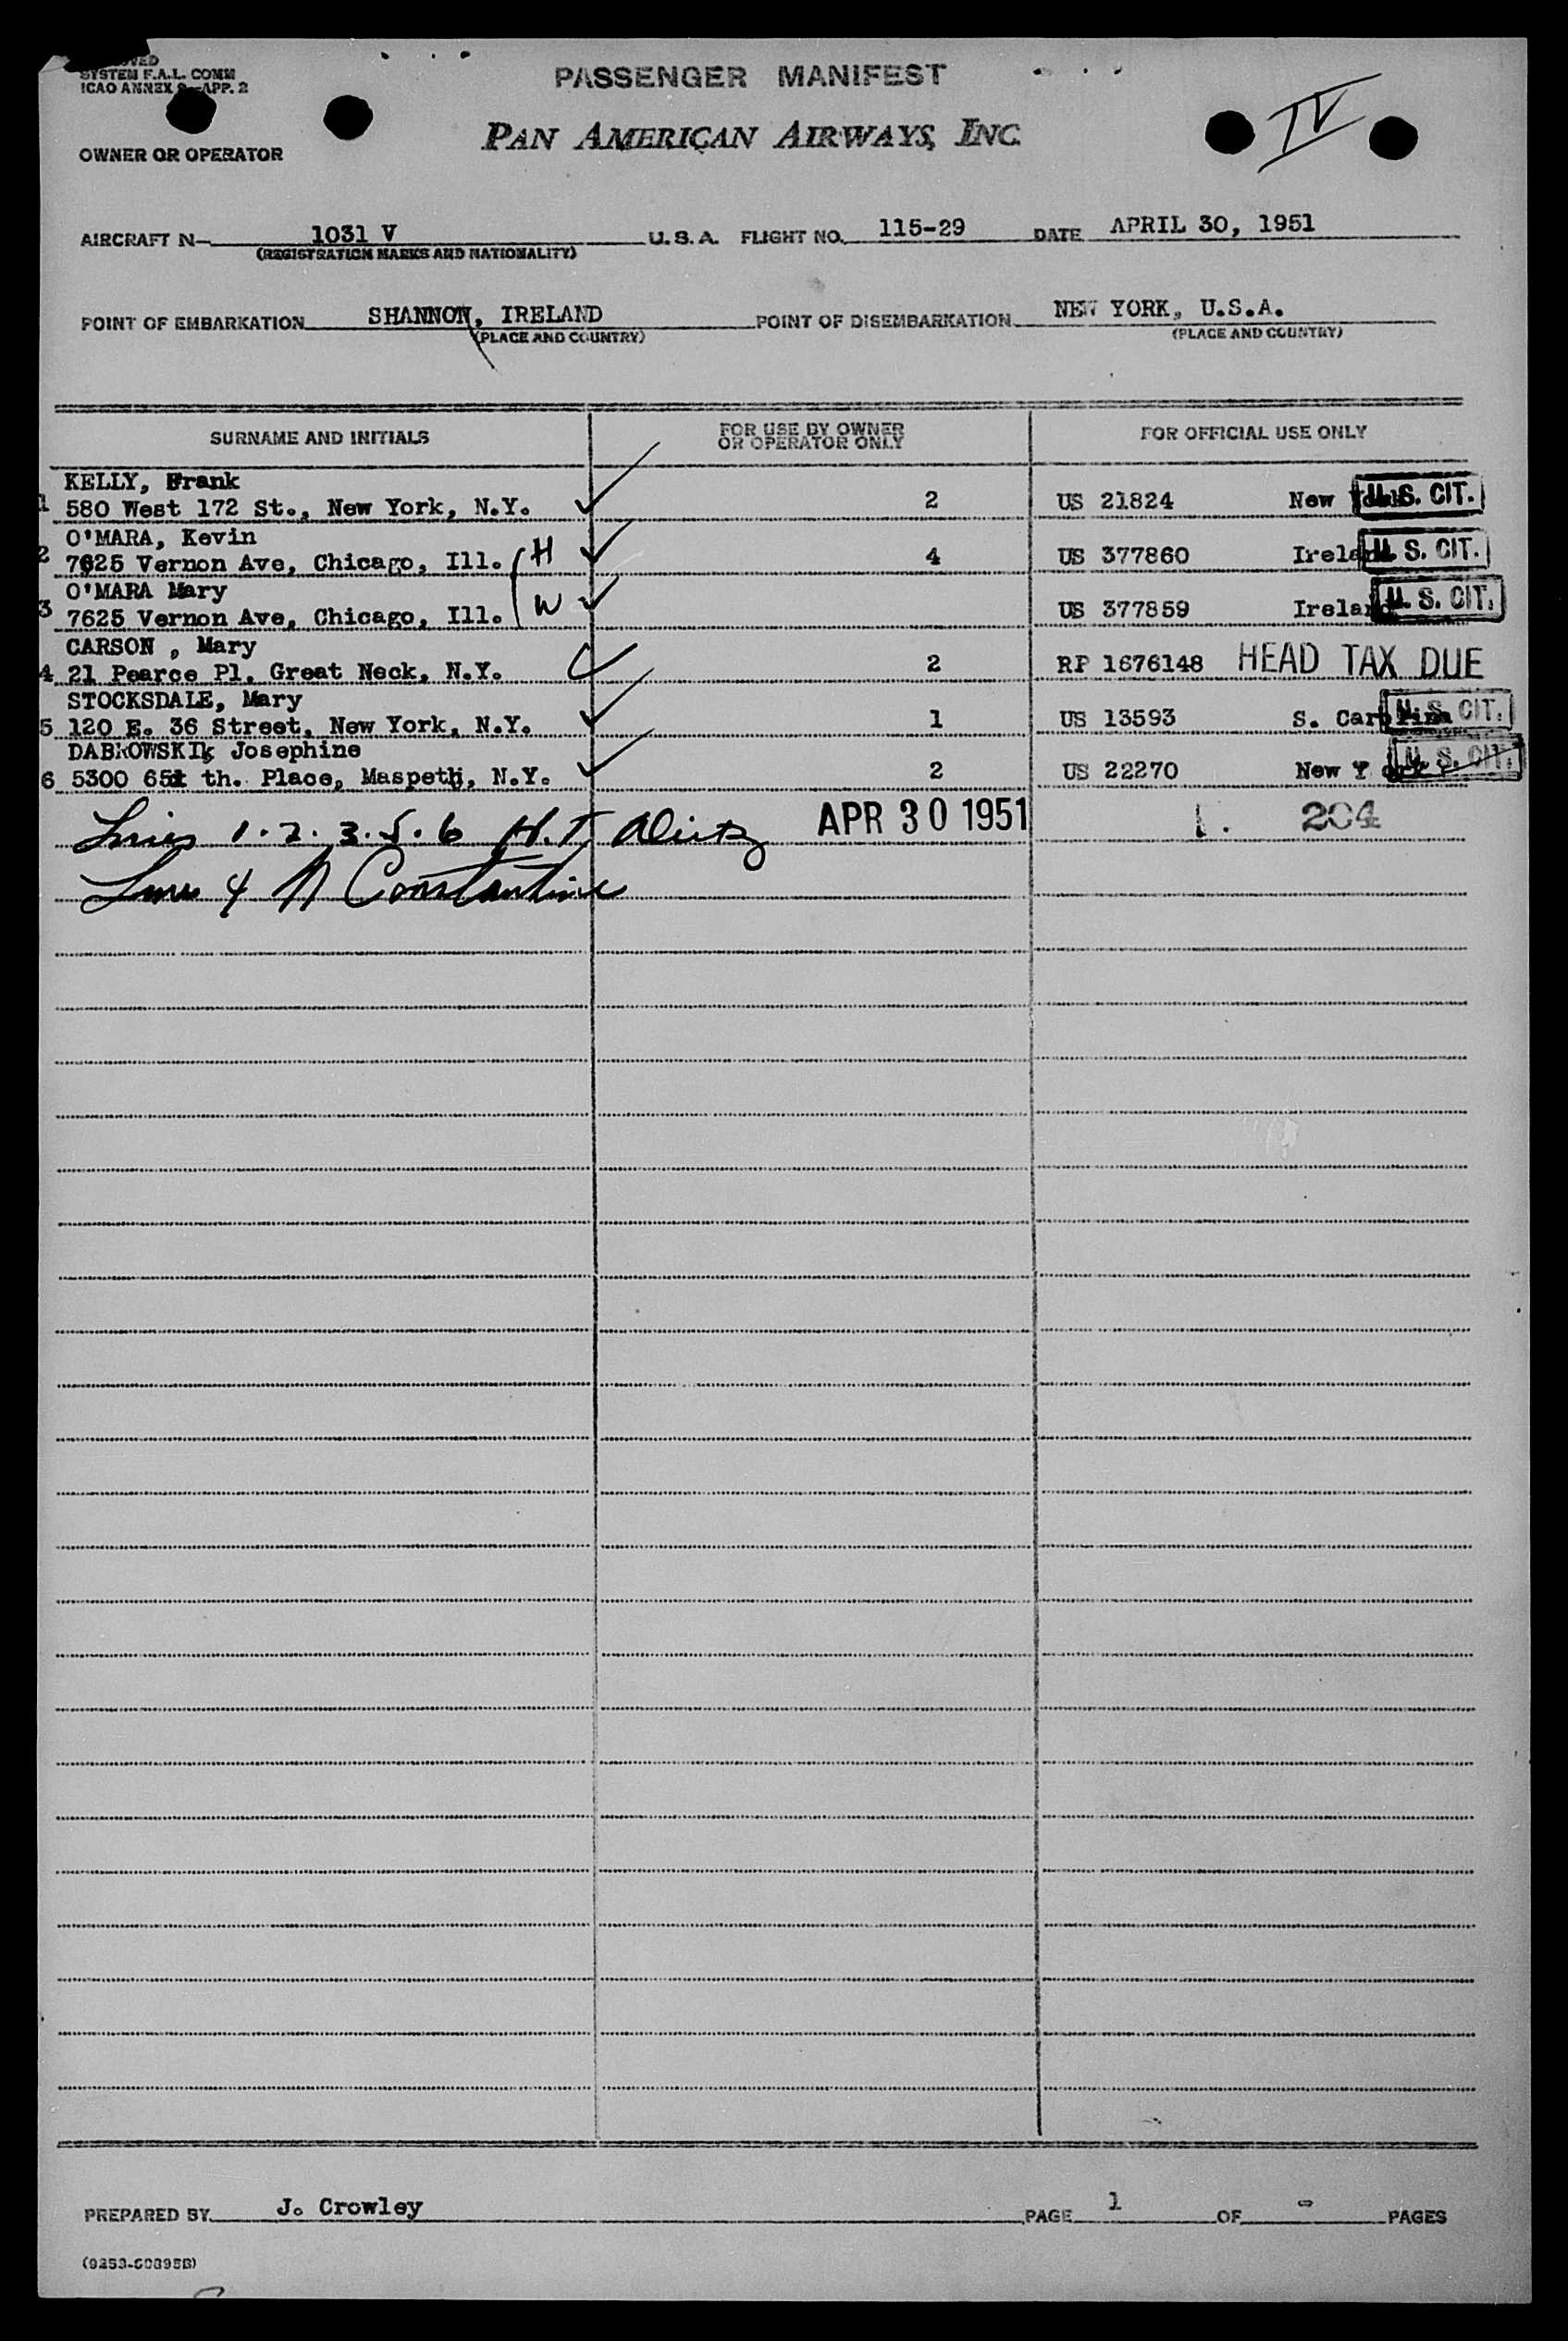 SYSTEM F.A.L. COMM
ICAO ANNEX 9-APP. 2
PASSENGER MANIFEST
IV
PAN AMERICAN AIRWAYS, INC.
OWNER OR OPERATOR
AIRCRAFT N- 1031 V U.S.A. FLIGHT NO. 115-29 DATE APRIL 30, 1951
(REGISTRATION MARKS AND NATIONALITY)
POINT OF EMBARKATION SHANNON, IRELAND POINT OF DISEMBARKATION NEW YORK, U.S.A.
(PLACE AND COUNTRY) (PLACE AND COUNTRY)
SURNAME AND INITIALS FOR USE BY OWNER OR OPERATOR ONLY FOR OFFICIAL USE ONLY
KELLY, Frank
1 580 West 172 St., New York, N.Y. 2 US 21824 New York U.S. CIT.
O'MARA, Kevin
2 7625 Vernon Ave, Chicago, Ill. H 4 US 377860 Ireland U.S. CIT.
O'MARA Mary
3 7625 Vernon Ave, Chicago, Ill. W US 377859 Ireland U.S. CIT.
CARSON , Mary
4 21 Pearce Pl. Great Neck, N.Y. 2 RP 1676148 HEAD TAX DUE
STOCKSDALE, Mary
5 120 E. 36 Street, New York, N.Y. 1 US 13593 S. Carolina U.S. CIT.
DABROWSKI, Josephine
6 5300 65 th. Place, Maspeth, N.Y. 2 US 22270 New Y ork U.S. CIT.
Lines 1.2.3.5.6 H.T. APR 30 1951 1. 204
Line 4 N Constantine
PREPARED BY J. Crowley PAGE 1 OF - PAGES